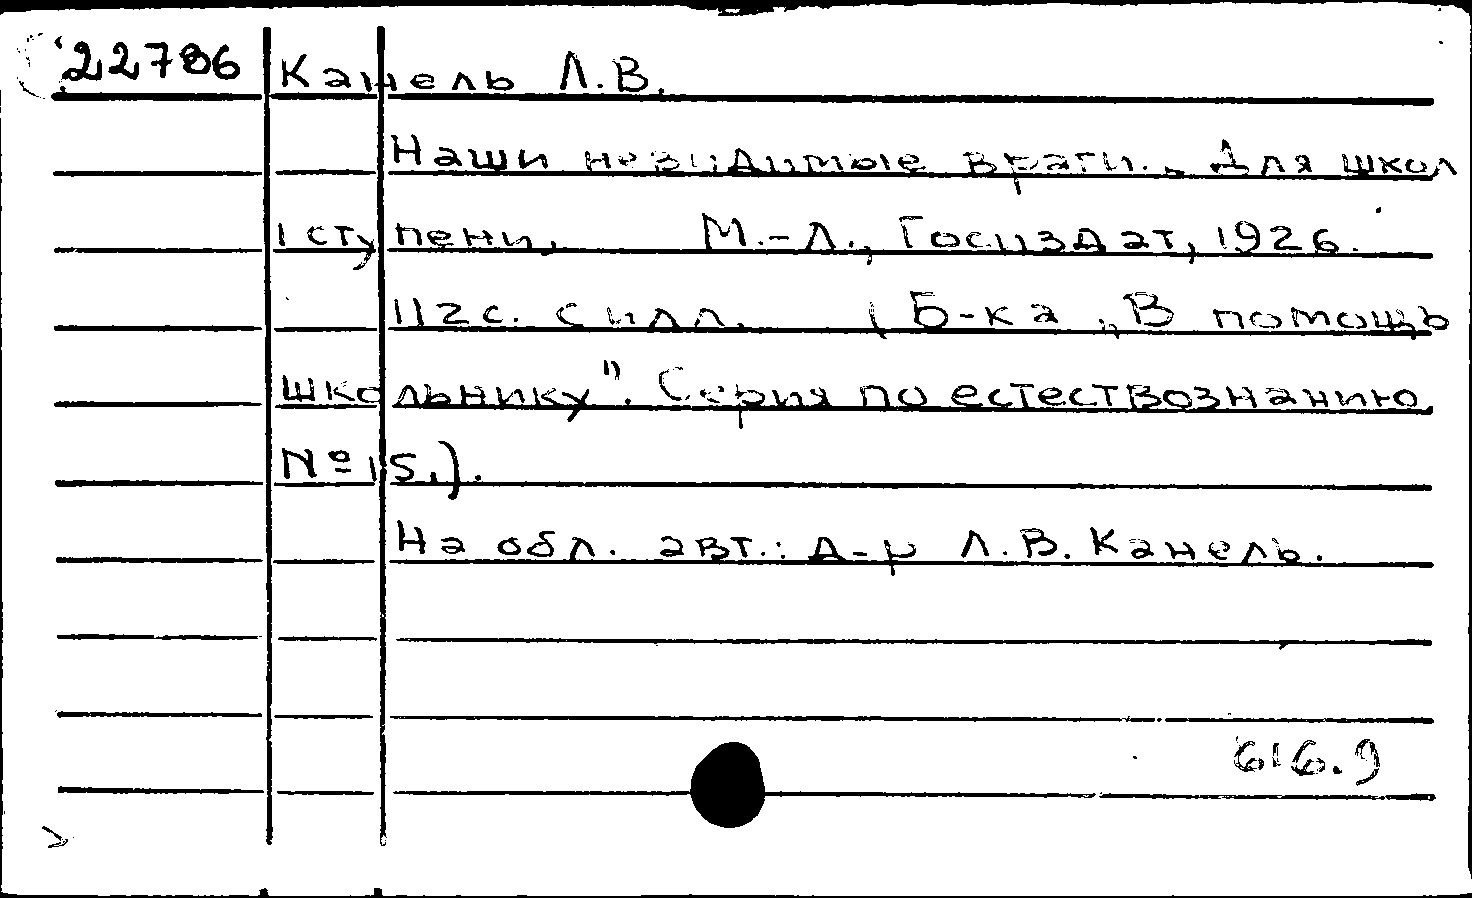 22786 Канель Л.В.
Наши невидимые враги. Для школ
I ступени. М.-Л., Госиздат, 1926.
112с. с илл. (Б-ка „В помощь
школьнику". Серия по естествознанию
№ 15.).
На обл. авт.: д-р Л.В. Канель.
616.9